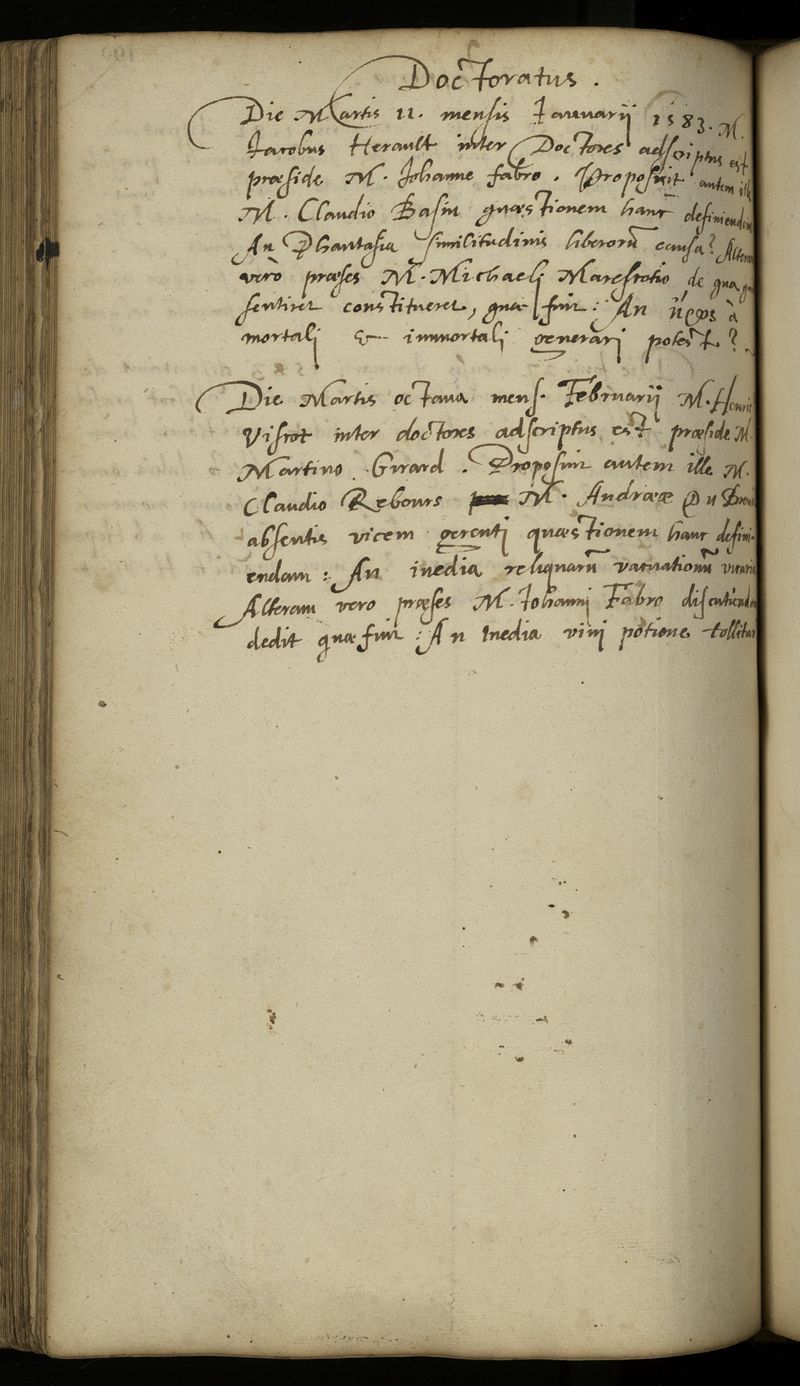 Doctoratus.
Die Martis 11. mensis Januarii 1583. M.
Jacobus Herault inter Doctores adscriptus est
præside M. Johanne fabro. Proposuit autem ille
M. Claudio Basin quæstionem hanc definiendam
An Phantasia similitudinis liberorum causa? Alteram
verò præses M. Michaeli Marescotio de qua quid
sentiret constitueret, quæ fuit: An ἥρως à
mortali & immortali generari potest?
Die Martis octava mens. Februarii M. Henricus
Visrot inter doctores adscriptus est præside M.
Martino Girard. Proposuit autem ille M.
Claudio Rebours M. Andrææ Du Breuil
absentis vicem gerenti quæstionem hanc defini-
endam: An inedia reliquarum vacuationum vicaria
Alteram vero præses M. Johanni Fabro discutiendam
dedit quæ fuit: An Inedia vini potione tollitur